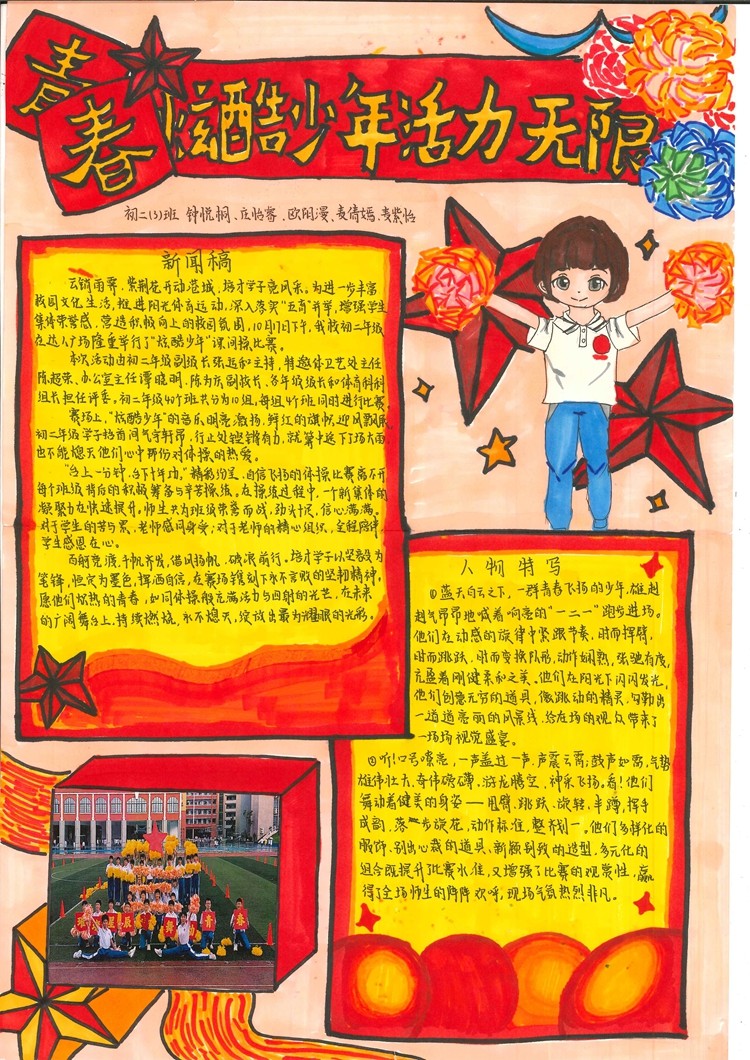 青春炫酷少年活力无限
初二(3)班 钟悦桐、庄怡蓉、欧阳漫、麦倩嫣、麦紫怡
新闻稿
云销雨霁,紫荆花开动莞城,培才学子竞风采。为进一步丰富
校园文化生活,推进阳光体育运动,深入落实“五育”并举,增强学生
集体荣誉感,营造积极向上的校园氛围,10月17日下午,我校初二年级
在达人广场隆重举行了“炫酷少年”课间操比赛。
本次活动由初二年级副级长张远和主持,特邀体卫艺处主任
陈超荣、办公室主任谭晓明、陈为东副校长、各年级级长和体育科科
组长担任评委。初二年级40个班共分为10组,每组4个班同时进行比赛。
赛场上,“炫酷少年”的音乐明亮激扬,鲜红的旗帜迎风飘扬,
初二年级学子挺首阔气宇轩昂,行止处铿锵有力,就算中途下了场大雨
也不能熄灭他们心中那份对体操的热爱。
“台上一分钟,台下十年功。”精彩纷呈、自信飞扬的体操比赛离不开
每个班级背后的积极筹备与辛苦操练。在操练过程中,一个新集体的
凝聚力在快速提升。师生共为班级荣誉而战,劲头十足,信心满满。
对于学生的苦与累,老师感同身受;对于老师的精心组织、全程陪伴,
学生感恩在心。
百舸竞渡,千帆齐发,借风扬帆,破浪前行。培才学子以坚毅为
笔锋,恒定为墨色,挥洒自信,在赛场镌刻下永不言败的坚韧精神。
愿他们炽热的青春,如同体操般充满活力与四射的光芒,在未来
的广阔舞台上,持续燃烧,永不熄灭,绽放出最为耀眼的光彩。
人物特写
①蓝天白云之下,一群青春飞扬的少年,雄赳
赳气昂昂地喊着响亮的“一二一”跑步进场。
他们在动感的旋律中紧跟节奏,时而挥臂,
时而跳跃,时而变换队形,动作娴熟,张弛有度,
充盈着刚健柔和之美。他们在阳光下闪闪发光。
他们创意无穷的道具,像跳动的精灵,勾勒出
一道道亮丽的风景线,给在场的观众带来了
一场场视觉盛宴。
②听!口号嘹亮,一声盖过一声,声震云霄;鼓声如雷,气势
雄伟壮大,奔伟磅礴,游龙腾空,神采飞扬。看!他们
舞动着健美的身姿——甩臂、跳跃、旋转、半蹲,挥手
成韵,落步旋花,动作标准,整齐划一。他们多样化的
服饰、别出心裁的道具、新颖别致的造型、多元化的
组合既提升了比赛水准,又增强了比赛的观赏性,赢
得了全场师生的阵阵欢呼,现场气氛热烈非凡。